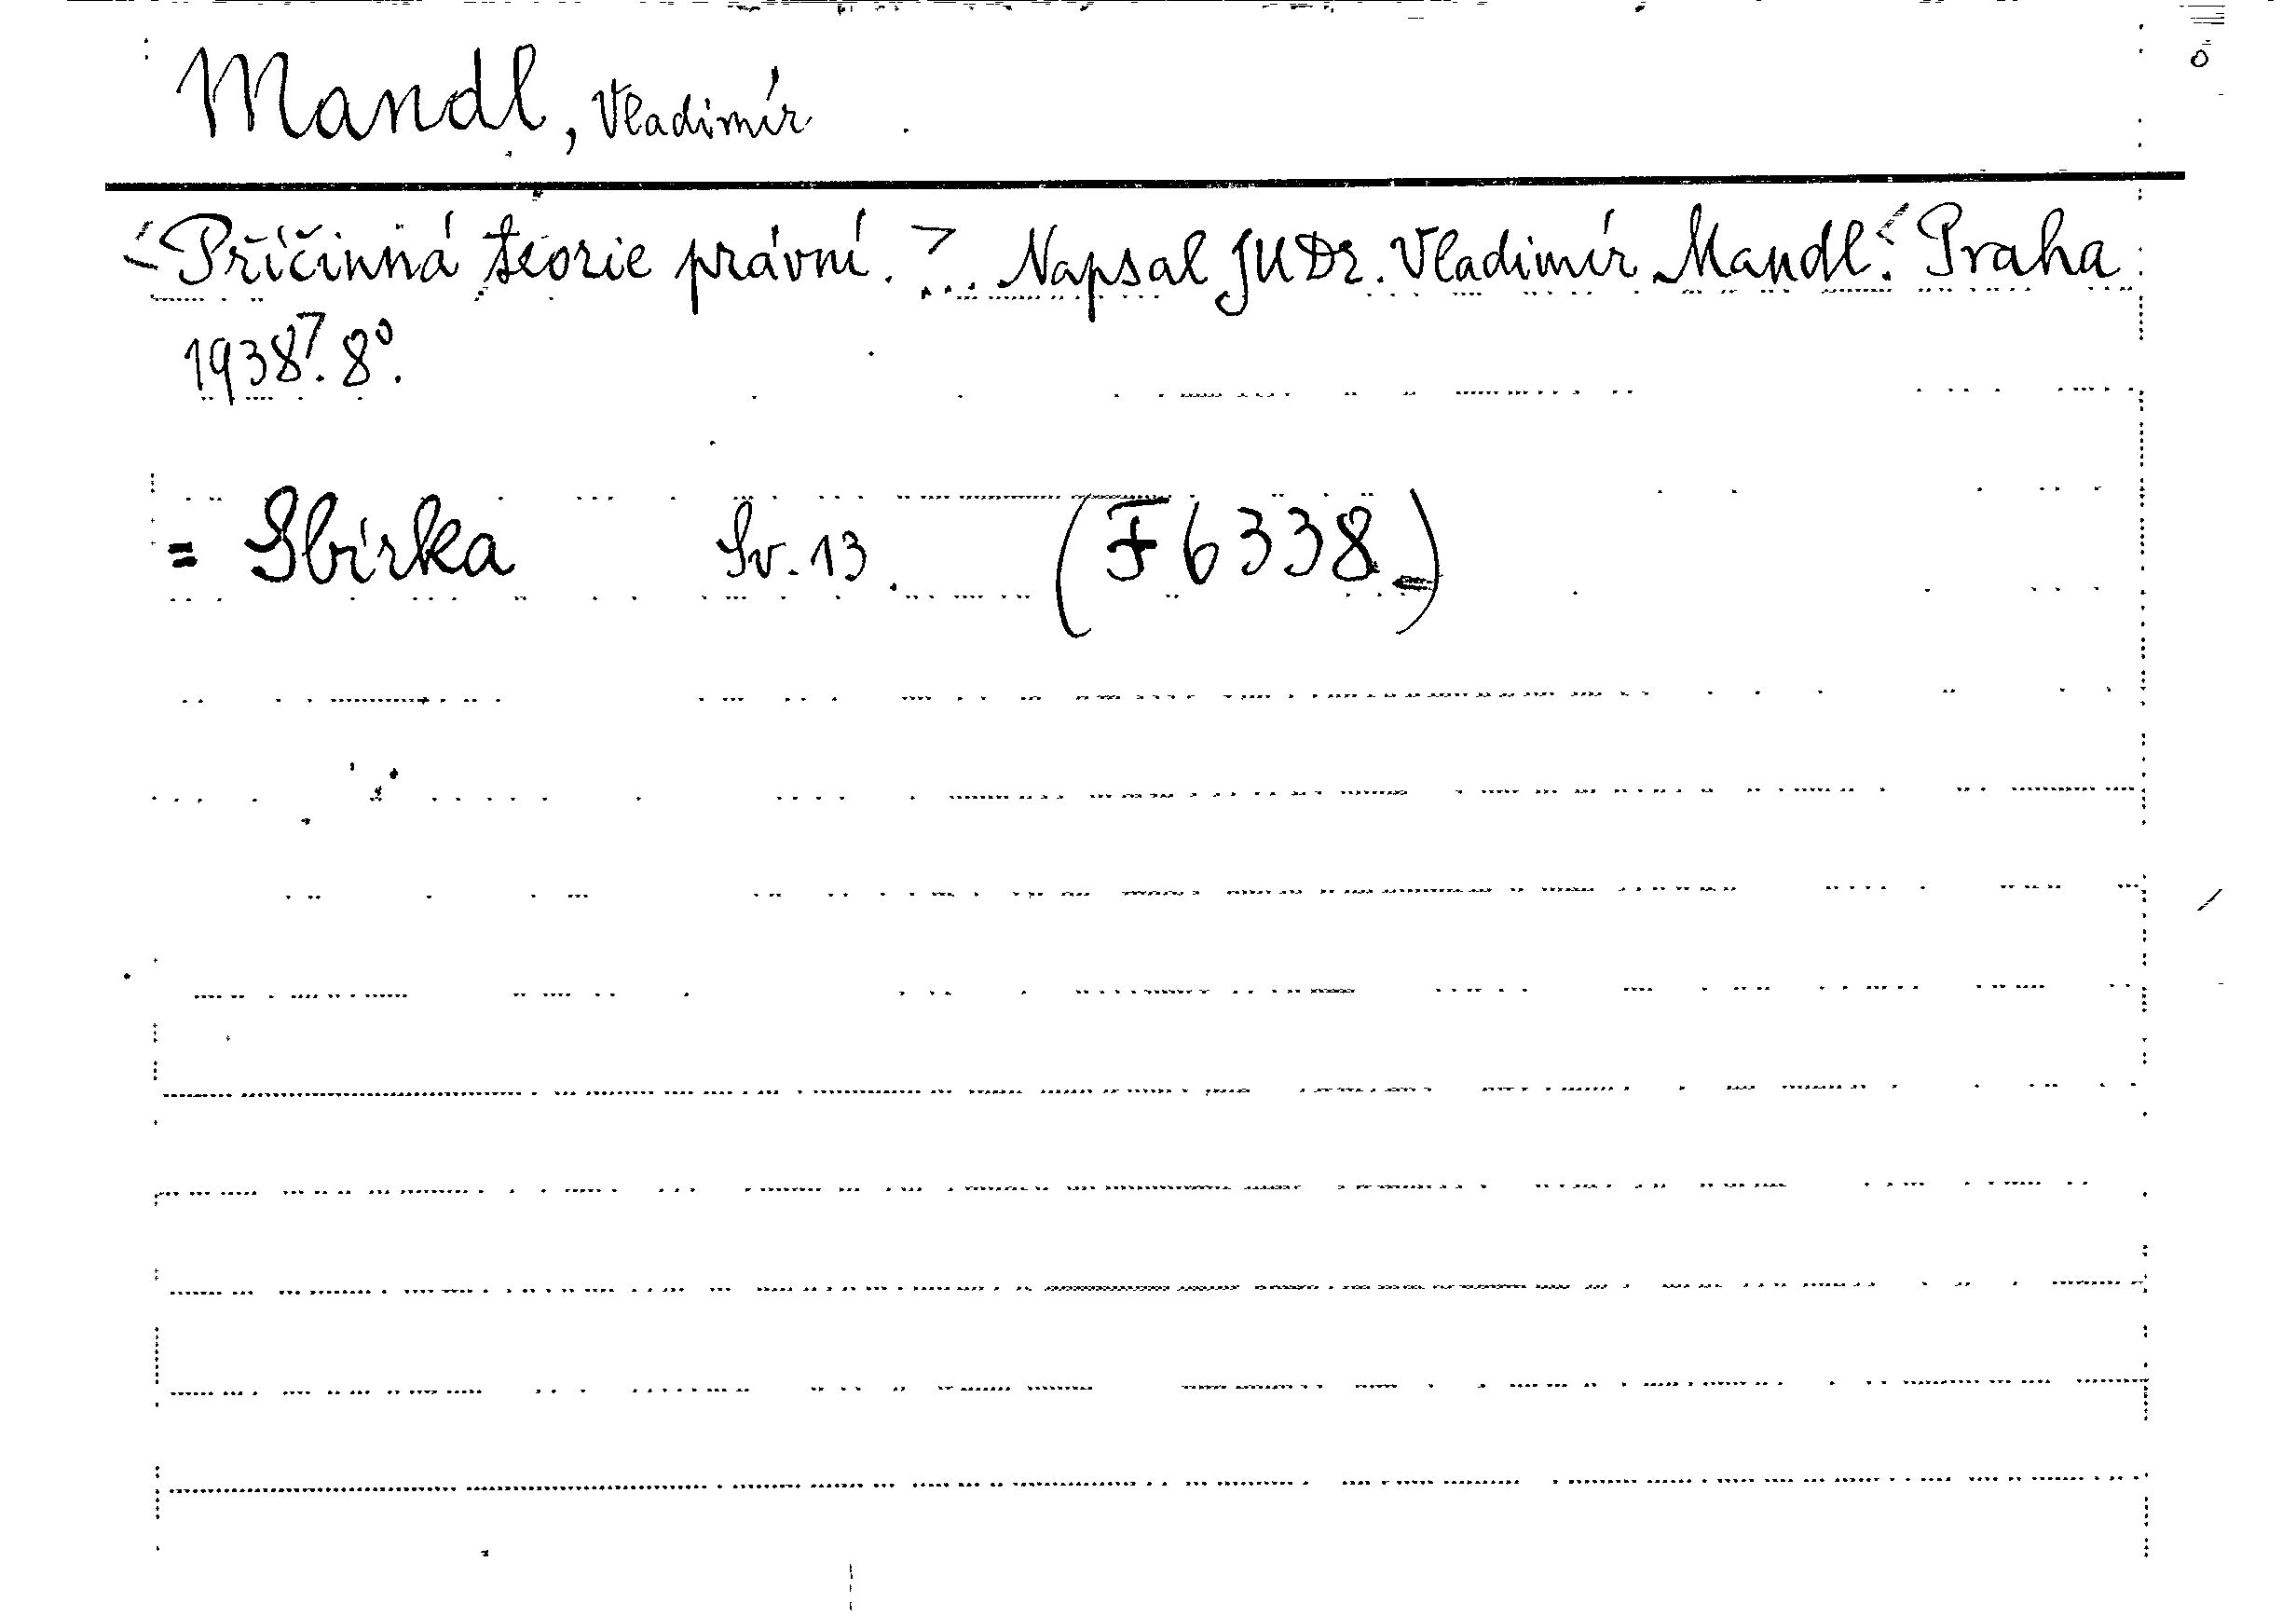 Mandl, Vladimír
<Příčinná teorie právní.> ... Napsal JUDr. Vladimír Mandl. <Praha
1938>. 8°.
= Sbírka Sv. 13. (F 6338)